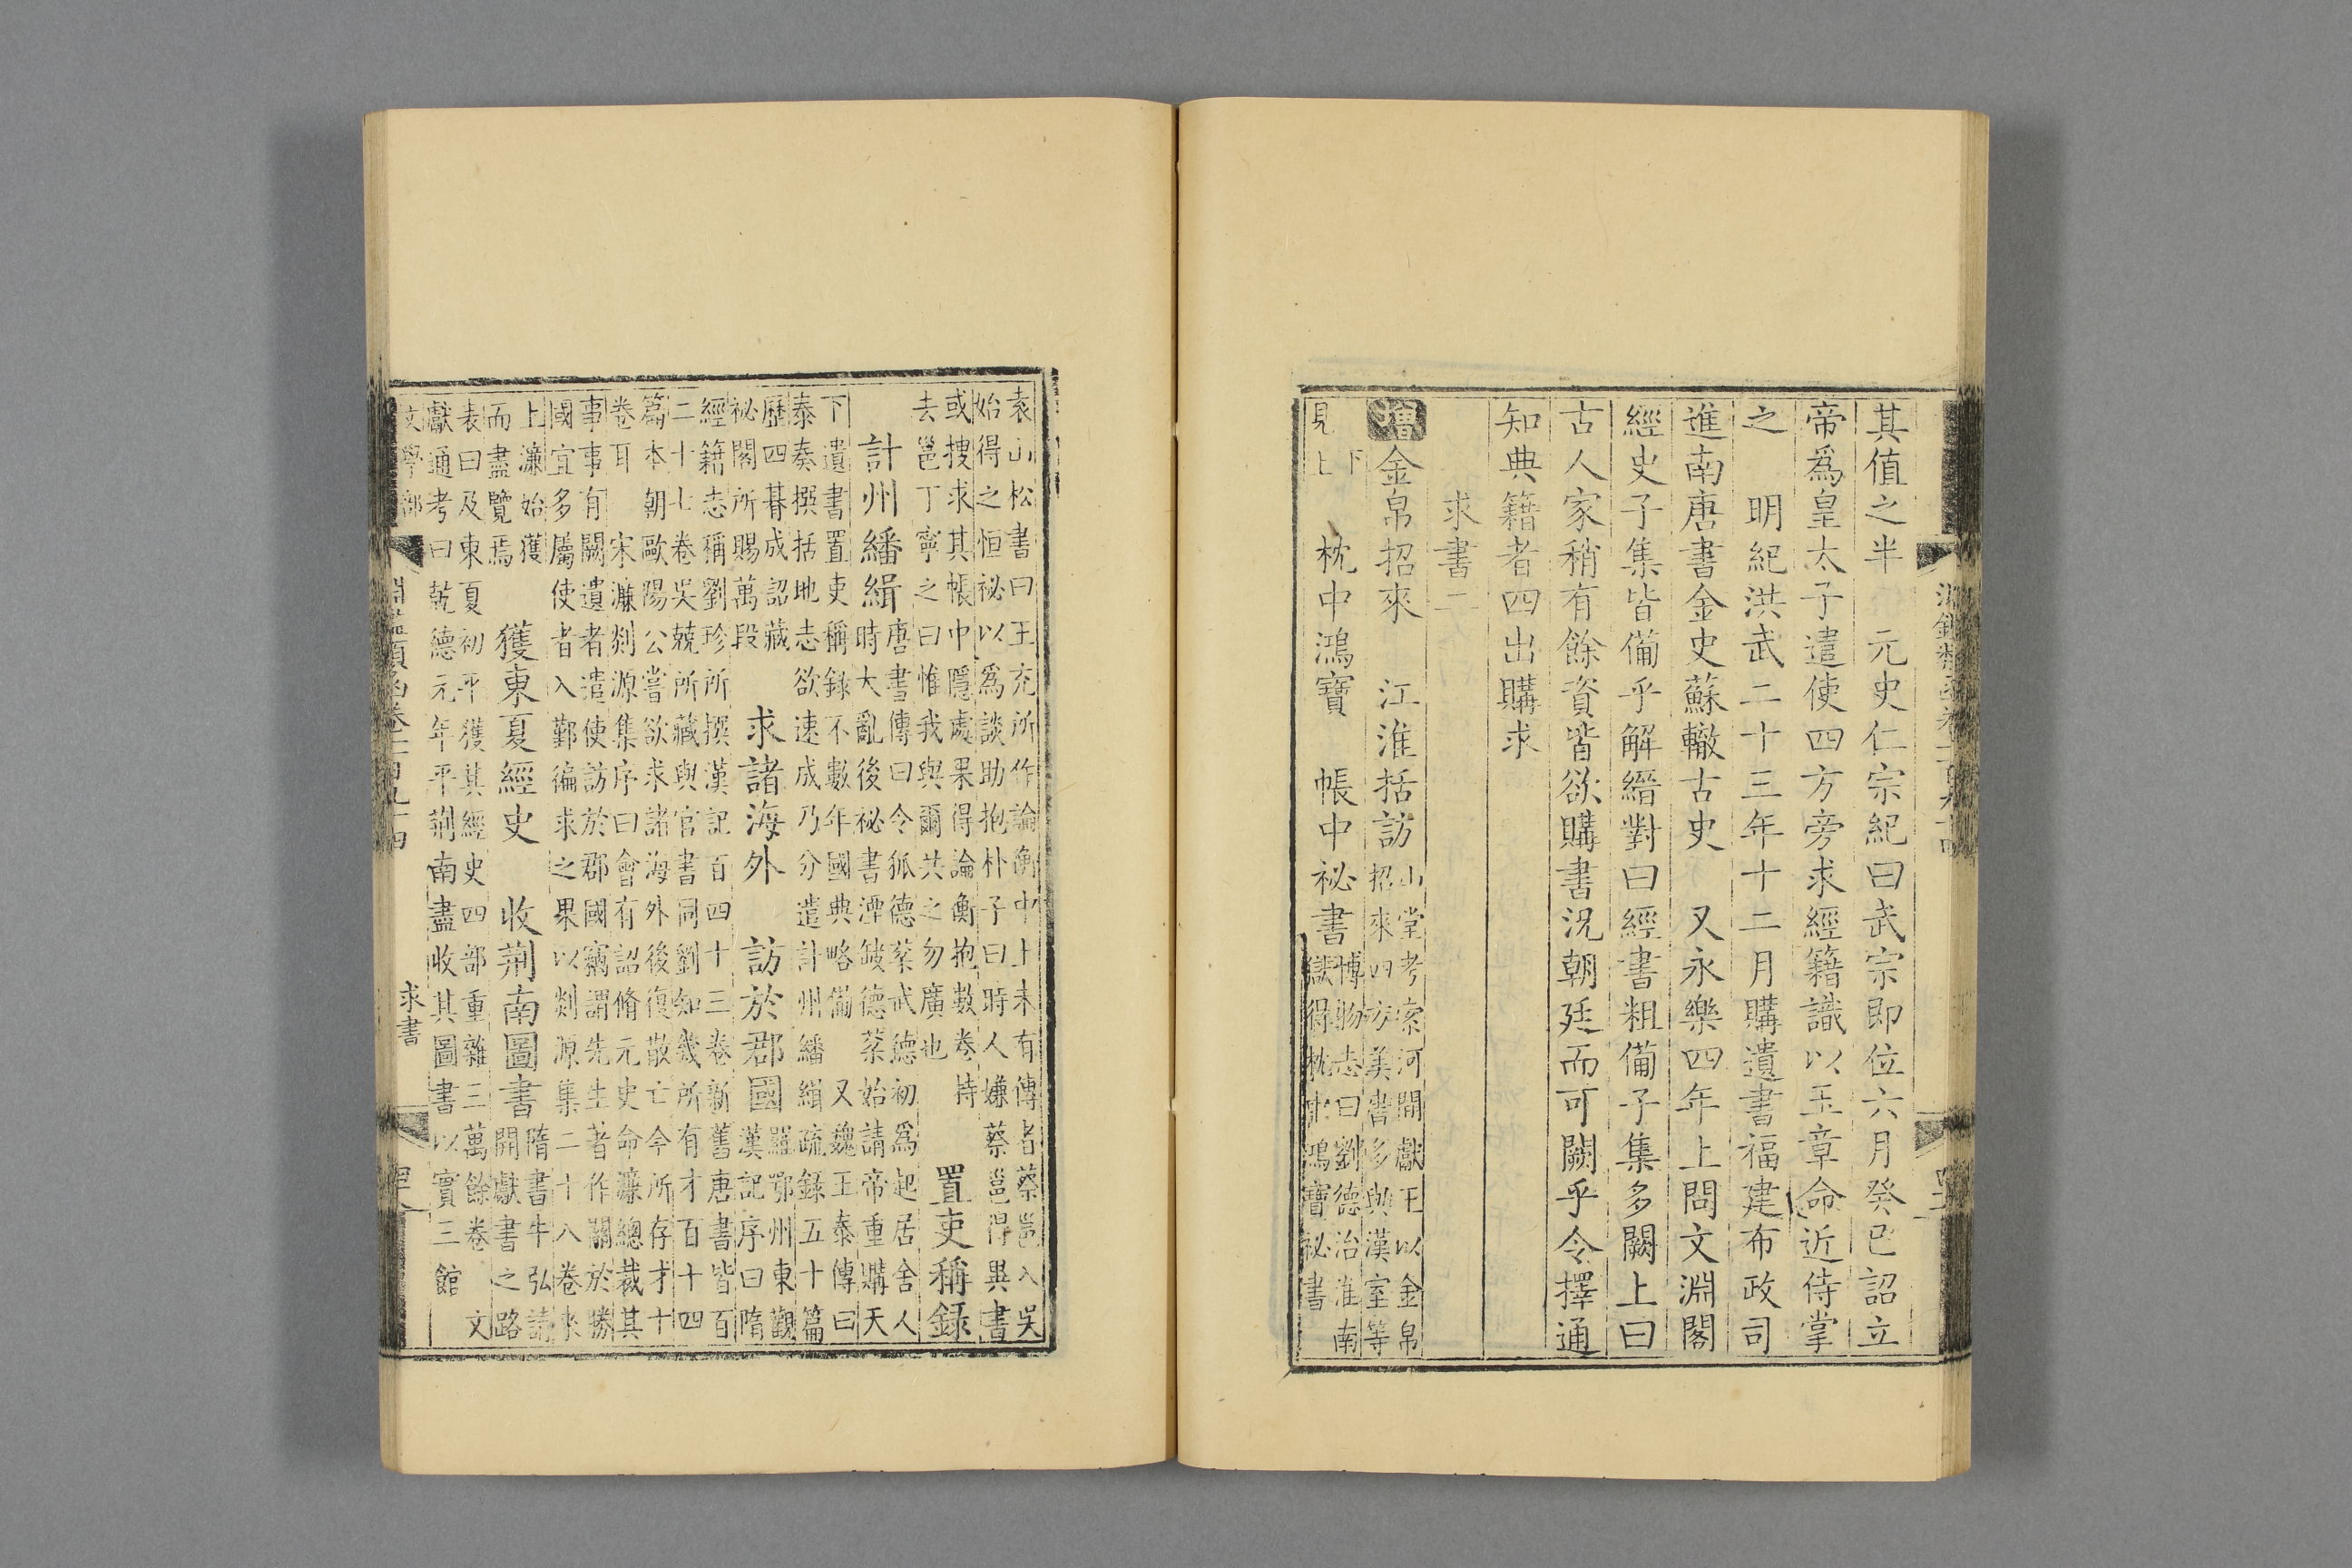 其值之半 元史仁宗紀曰武宗即位六月癸巳詔立
帝爲皇太子遣使四方旁求經籍識以玉章命近侍掌
之 明紀洪武二十三年十二月購遺書福建布政司
進南唐書金史蘇轍古史 又永樂四年上問文淵閣
經史子集皆備乎解縉對曰經書粗備子集多闕上曰
古人家稍有餘資皆欲購書況朝廷而可闕乎令擇通
知典籍者四出購求
求書二
增金帛招來 江淮括訪
山堂考索河間獻王以金帛
招來四方善書多與漢室等
下
見上
枕中鴻寶 帳中祕書
博物志曰劉德治淮南
獄得枕中鴻寶祕書
袁山松書曰王充所作論衡中土未有傳者蔡邕入吳
始得之恒祕以爲談助抱朴子曰時人嫌蔡邕得異書
或搜求其帳中隱處果得論衡抱數卷持
去邕丁寧之曰惟我與爾共之勿廣也
置吏稱錄
計州繙緝
唐書傳曰令狐德棻武德初爲起居舍人
時大亂後祕書湮缺德棻始請帝重購天
下遺書置吏稱錄不數年國典略備 又魏王泰傳曰
泰奏撰括地志欲速成乃分遣計州繙緝疏錄五十篇
歷四朞成詔藏
祕閣所賜萬段
求諸海外 訪於郡國
羅鄂州東觀
漢記序曰隋
經籍志稱劉珍所撰漢記百四十三卷新舊唐書皆百
二十七卷吳兢所藏與官書同劉知幾所有才百十四
篇本朝歐陽公嘗欲求諸海外後復散亡今所存才十
卷耳 宋濂剡源集序曰會有詔脩元史命濂總裁其
事事有闕遺者遣使訪於郡國竊謂先生著作關於勝
國宜多屬使者入鄞徧求之果以剡源集二十八卷來
上濂始獲
而盡覽焉
獲東夏經史 收荊南圖書
隋書牛弘請
開獻書之路
表曰及東夏初平獲其經史四部重雜三萬餘卷 文
獻通考曰乾德元年平荊南盡收其圖書以實三館
文學部
淵鑑類函卷一百九十四
求書